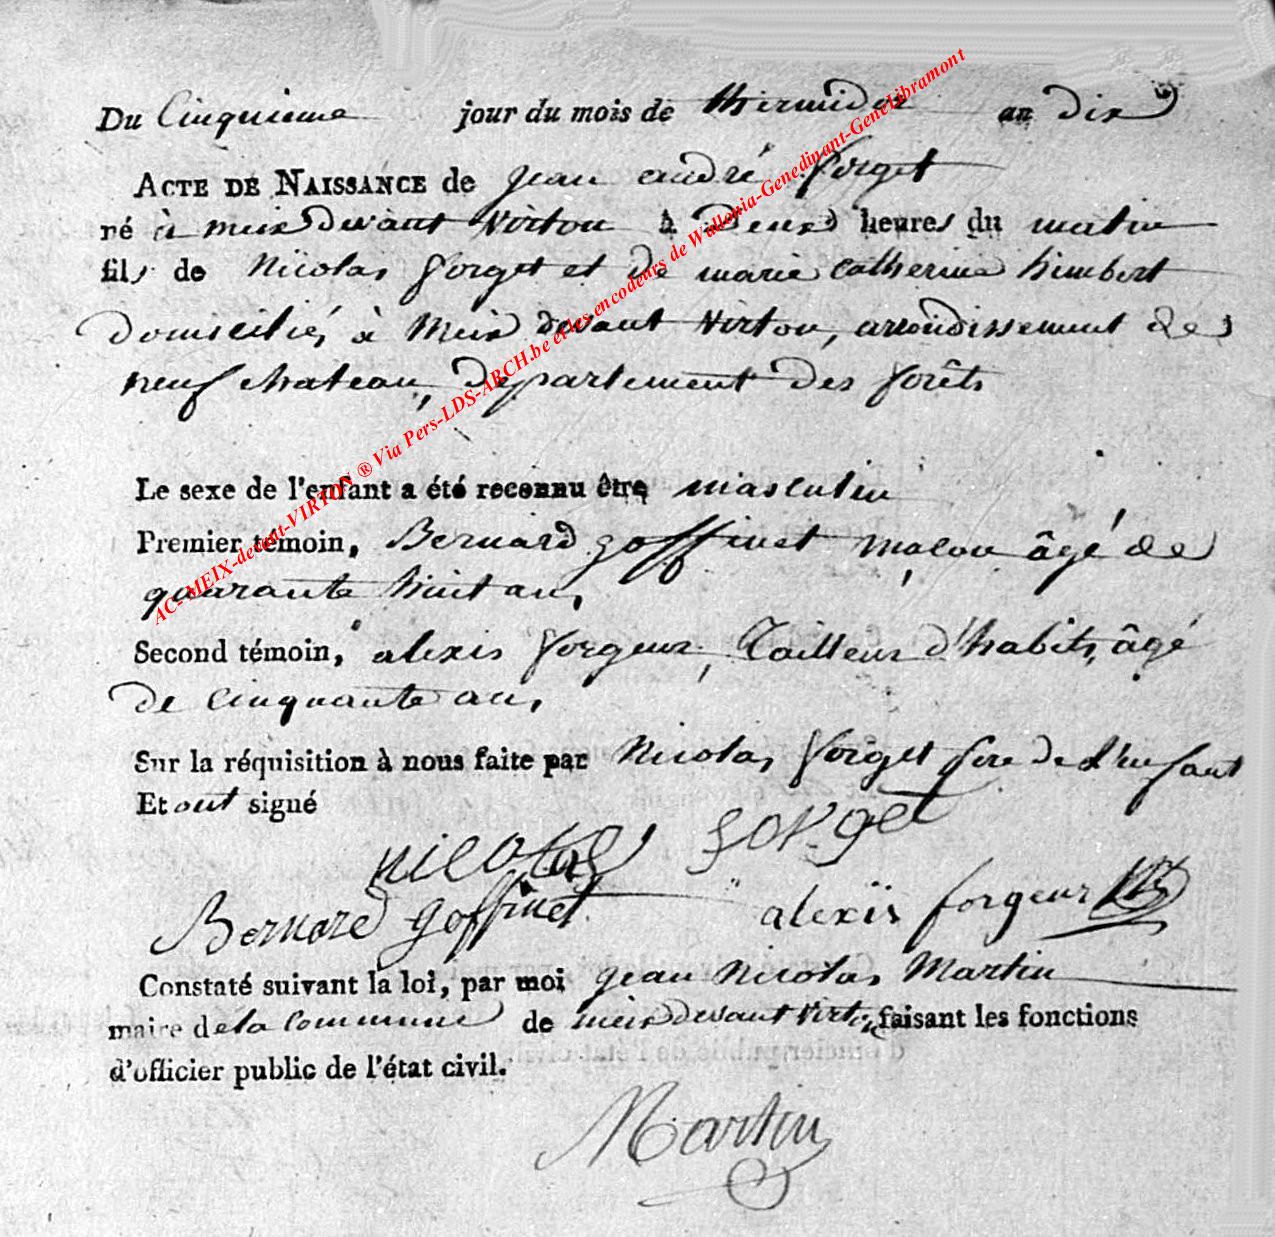 Du Cinquieme jour du mois de thermidor an dix
ACTE DE NAISSANCE de jean andré forget
né à meix devant Virton à Deux heures du matin
fils de Nicolas forget et de marie catherine himbert
domiciliés à Meix devant Virton, arrondissement de
neufchateau, departement des forêts
Le sexe de l'enfant a été reconnu être masculin
Premier témoin, Bernard goffinet maçon âgé de
quarante huit ans
Second témoin, alexis forgeur, Tailleur d'habits, âgé
de cinquante ans,
Sur la réquisition à nous faite par Nicolas forget pere de l'enfant
Et ont signé
nicolas forget
Bernard goffinet alexis forgeur
Constaté suivant la loi, par moi jean Nicolas Martin
maire de la commune de meix devant Virton faisant les fonctions
d'officier public de l'état civil.
Martin
AC-MEIX-devant-VIRTON ® Via Pers-LDS-ARCH.be et les encodeurs de Wallonia-Genedinant-GeneLibramont